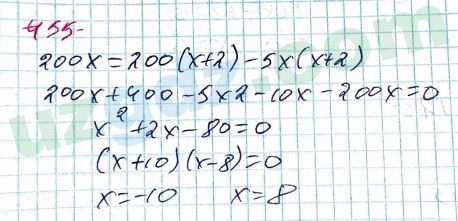 455-
200x=200(x+2)-5x(x+2)
200x+400-5x2-10x-200x=0
x²+2x-80=0
(x+10)(x-8)=0
x=-10 x=8